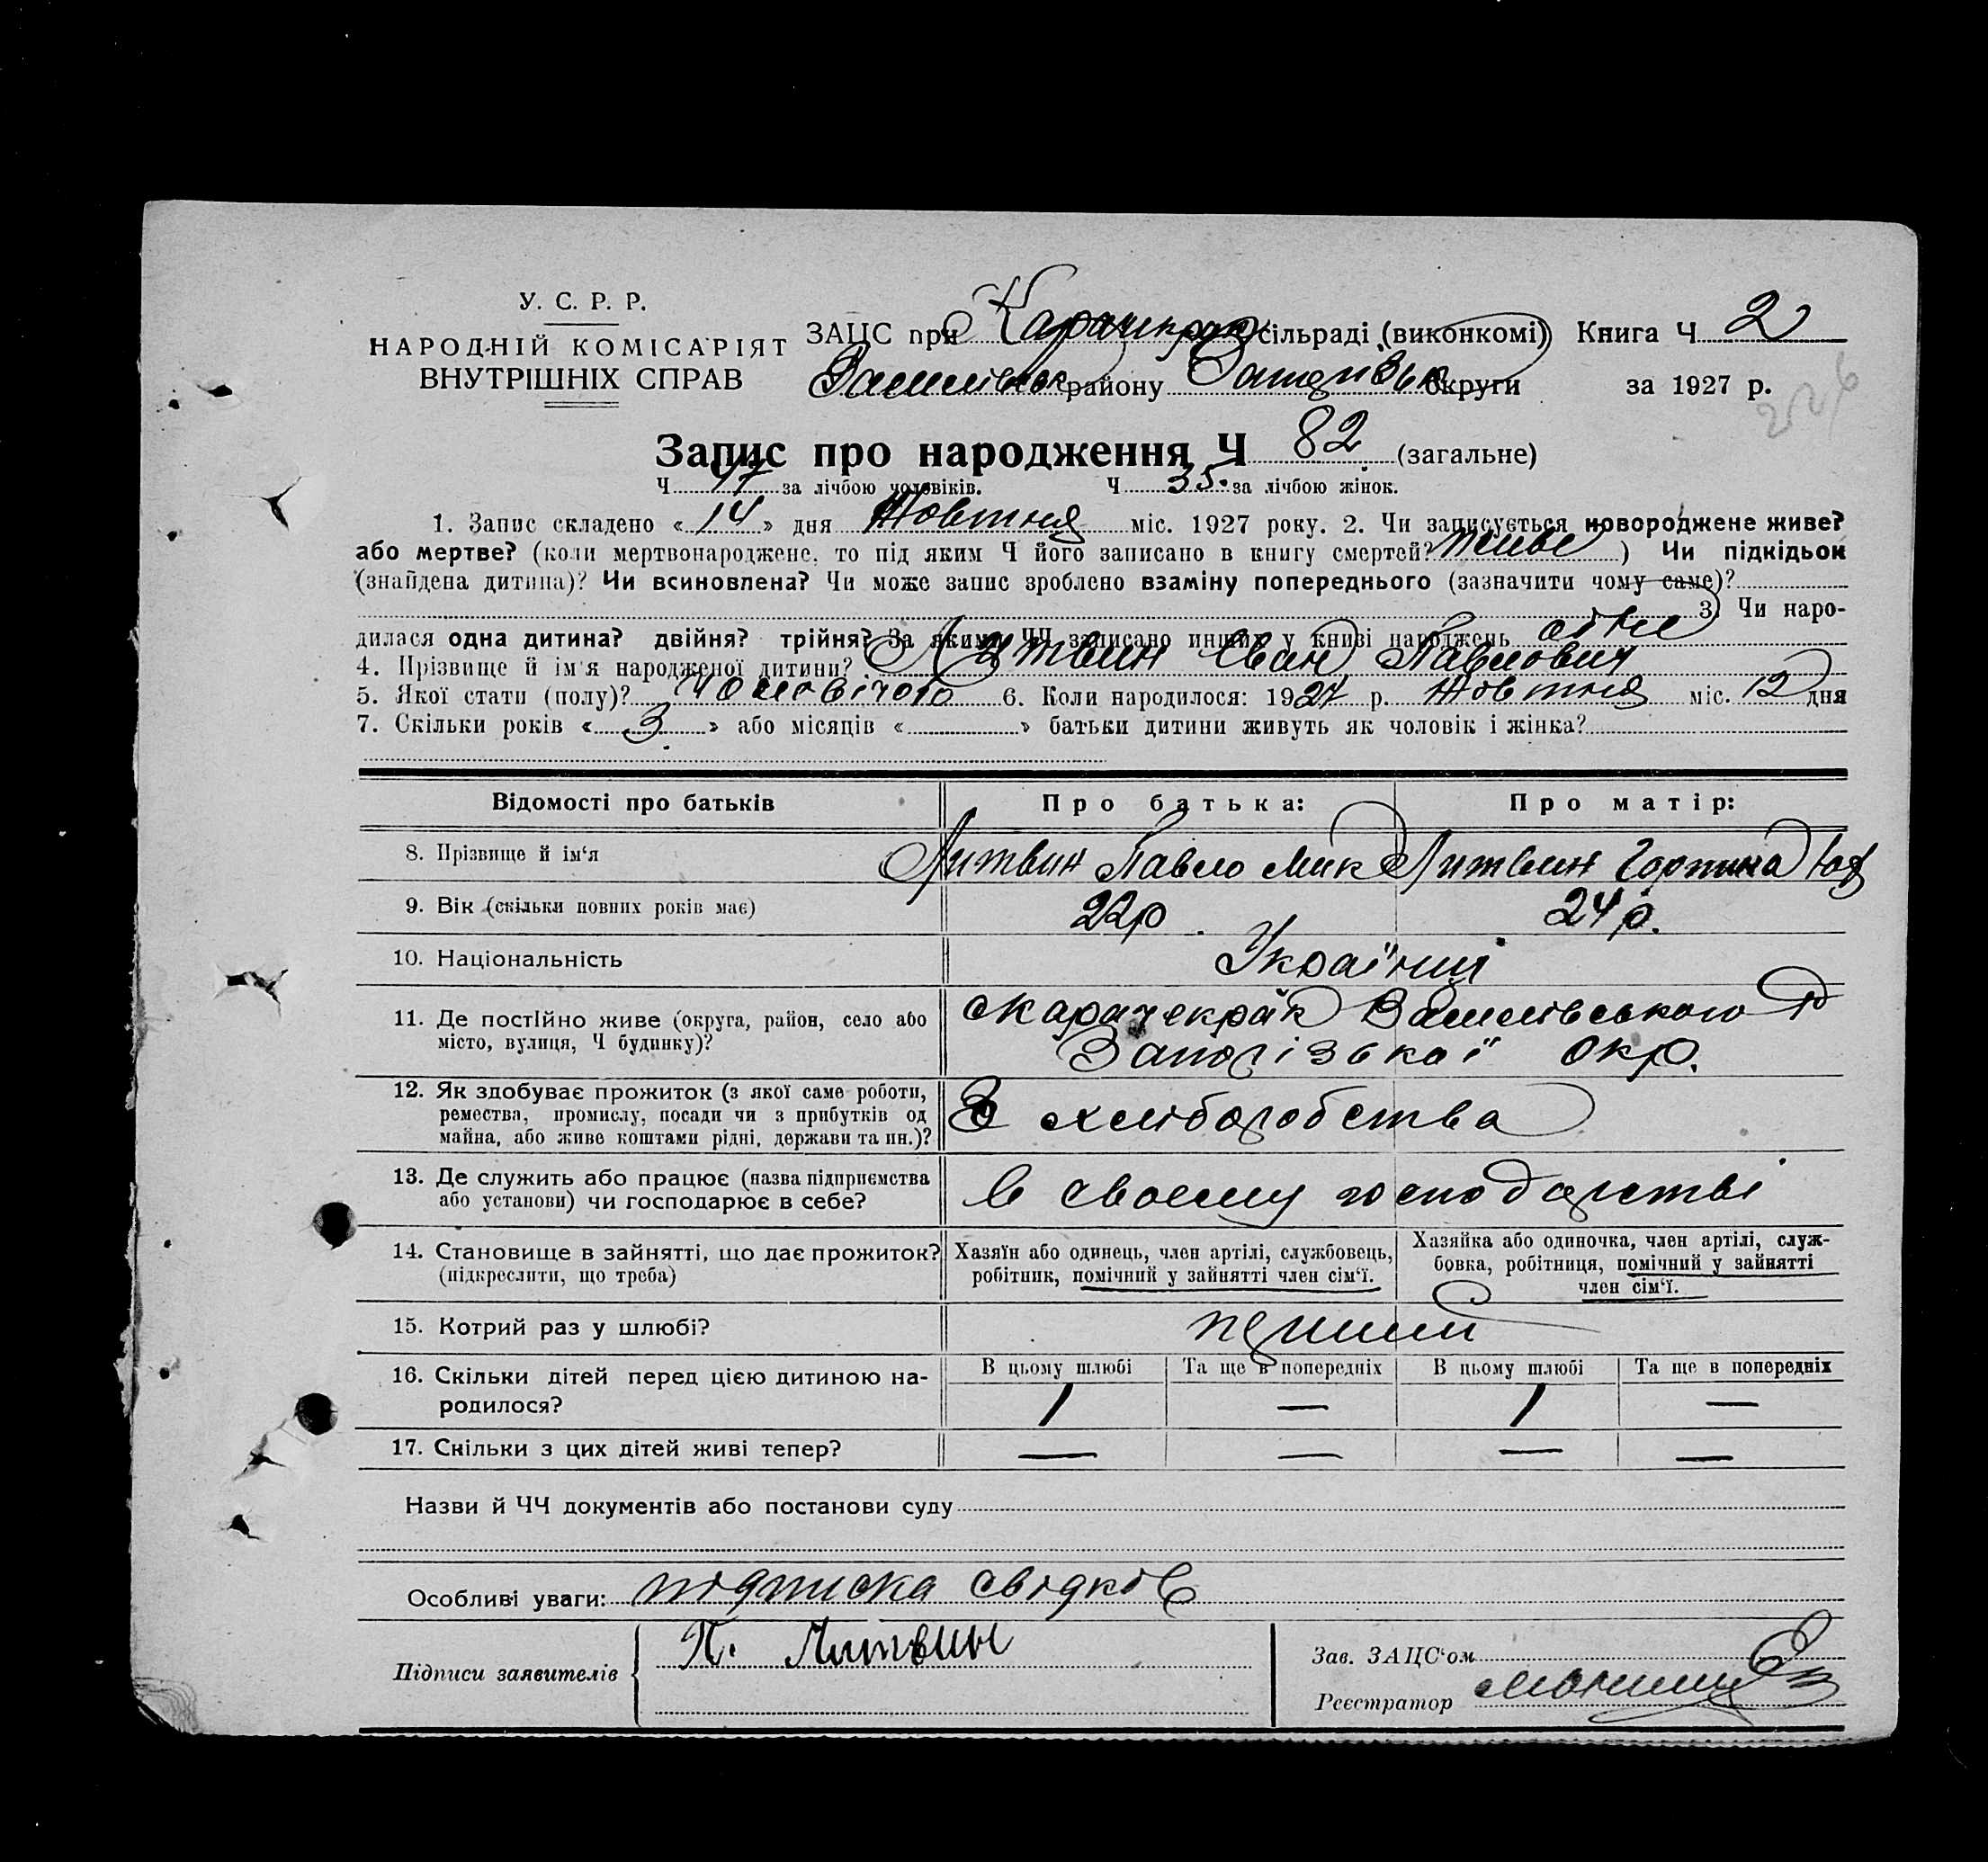 У. С. Р. Р.
НАРОДНІЙ КОМІСАРІЯТ
ВНУТРІШНІХ СПРАВ
ЗАЦС при Карачекрак сільраді (виконкомі) Книга Ч 2
району округи за 1927 р.
226
Запис про народження Ч 82 (загальне)
Ч 47 за лічбою чоловіків. Ч 35. за лічбою жінок.
1. Запис складено « 14 » дня Жовтня міс. 1927 року. 2. Чи записується новороджене живе?
або мертве? (коли мертвонароджене, то під яким Ч його записано в книгу смертей? живе ) Чи підкідьок
(знайдена дитина)? Чи всиновлена? Чи може запис зроблено взаміну попереднього (зазначити чому саме)?
3. Чи наро-
дилася одна дитина? двійня? трійня? За якими ЧЧ записано инших у книзі народжень
4. Прізвище й ім'я народженої дитини? Литвин Іван Павлович
5. Якої стати (полу)? чоловічого 6. Коли народилося: 1927 р. Жовтня міс. 12 дня
7. Скільки років « 3 » або місяців « » батьки дитини живуть як чоловік і жінка?
Відомості про батьків Про батька: Про матір:
8. Прізвище й ім'я Литвин Павло Мик Литвин Горпина
9. Вік (скільки повних років має) 22р 24р.
10. Національність Українці
11. Де постійно живе (округа, район, село або
місто, вулиця, Ч будинку)?
с Карачекрак Василівського р
Запорізької окр.
12. Як здобуває прожиток (з якої саме роботи,
ремества, промислу, посади чи з прибутків од
майна, або живе коштами рідні, держави та ин.)?
З хліборобства
13. Де служить або працює (назва підприємства
або установи) чи господарює в себе?
в своему господарстві
14. Становище в зайнятті, що дає прожиток?
(підкреслити, що треба)
Хазяїн або одинець, член артілі, службовець,
робітник, помічний у зайнятті член сім'ї.
Хазяйка або одиночка, член артілі, служ-
бовка, робітниця, помічний у зайнятті
член сім'ї.
15. Котрий раз у шлюбі? перший
16. Скільки дітей перед цією дитиною на-
родилося?
В цьому шлюбі Та ще в попередніх В цьому шлюбі Та ще в попередніх
1 — 1 —
17. Скільки з цих дітей живі тепер? — — — —
Назви й ЧЧ документів або постанови суду
Особливі уваги: підписка свідків
Підписи заявителів П. Литвин
Зав. ЗАЦС'ом
Реєстратор